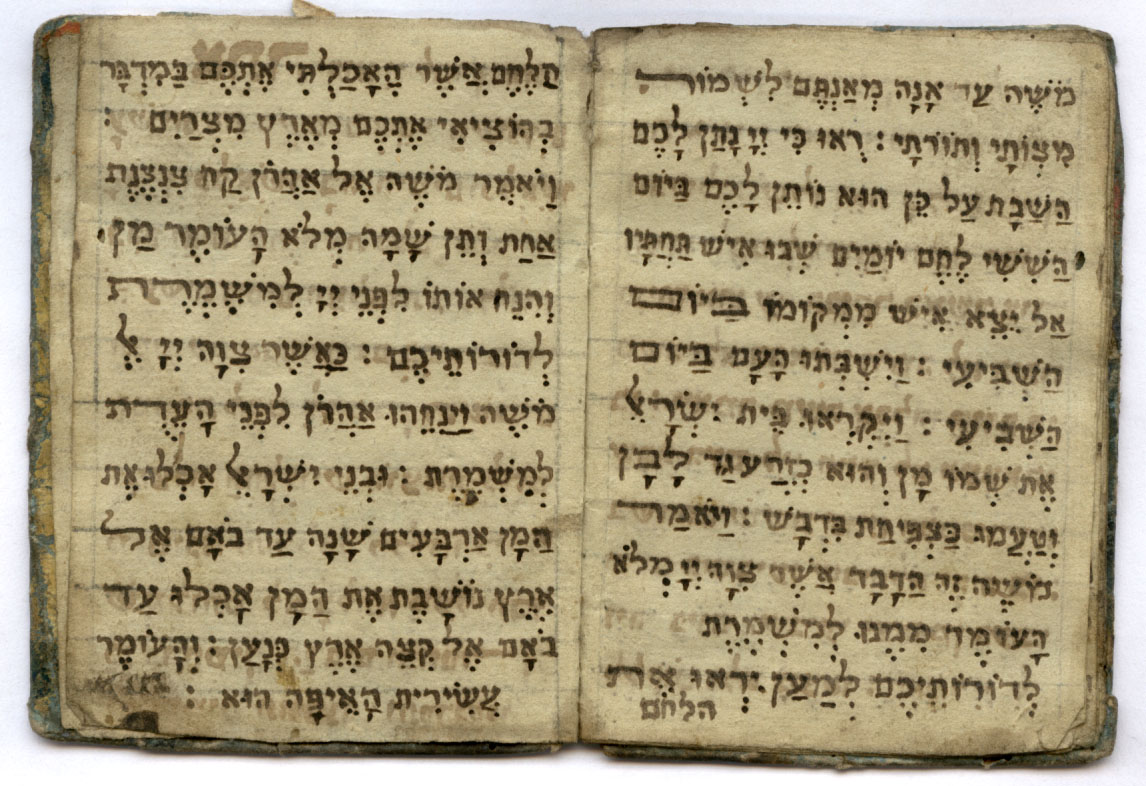 מֹשֶׁה עַד אָנָה מְאַנְתֶּם לִשְׁמוֹר
מִצְוֹתָי וְתוֹרֹתָי : רְאוּ כִּי יְיָ נָתַן לָכֶם
הַשַּׁבָּת עַל כֵּן הוּא נוֹתֵן לָכֶם בַּיּוֹם
הַשִּׁשִּׁי לֶחֶם יוֹמַיִם שְׁבוּ אִישׁ תַּחְתָּיו
אַל יֵצֵא אִישׁ מִמְּקוֹמוֹ בַּיּוֹם
הַשְּׁבִיעִי : וַיִּשְׁבְּתוּ הָעָם בַּיּוֹם
הַשְּׁבִיעִי : וַיִּקְרְאוּ בֵּית יִשְׂרָאֵל
אֶת שְׁמוֹ מָן וְהוּא כְּזֶרַע גַּד לָבָן
וְטַעֲמוֹ כַּצְפִּיחַת בִּדְבָשׁ : וַיֹּאמַר
מֹשֶׁה זֶה הַדָּבָר אֲשֶׁר צִוָּה יְיָ מְלֹא
הָעוֹמֶר מִמֶּנּוּ לְמִשְׁמֶרֶת
לְדוֹרוֹתֵיכֶם לְמַעַן יִרְאוּ אֶת
הלחם
הַלֶּחֶם אֲשֶׁר הֶאֱכַלְתִּי אֶתְכֶם בַּמִּדְבָּר
בְּהוֹצִיאִי אֶתְכֶם מֵאֶרֶץ מִצְרַיִם :
וַיֹּאמֶר מֹשֶׁה אֶל אַהֲרֹן קַח צִנְצֶנֶת
אַחַת וְתֵן שָׁמָּה מְלֹא הָעוֹמֶר מָן
וְהַנַּח אוֹתוֹ לִפְנֵי יְיָ לְמִשְׁמֶרֶת
לְדוֹרוֹתֵיכֶם : כַּאֲשֶׁר צִוָּה יְיָ אֶל
מֹשֶׁה וַיַּנִּחֵהוּ אַהֲרֹן לִפְנֵי הָעֵדֻת
לְמִשְׁמֶרֶת : וּבְנֵי יִשְׂרָאֵל אָכְלוּ אֶת
הַמָּן אַרְבָּעִים שָׁנָה עַד בֹּאָם אֶל
אֶרֶץ נוֹשָׁבֶת אֶת הַמָּן אָכְלוּ עַד
בֹּאָם אֶל קְצֵה אֶרֶץ כְּנָעַן : וְהָעוֹמֶר
עֲשִׂירִית הָאֵיפָה הוּא :